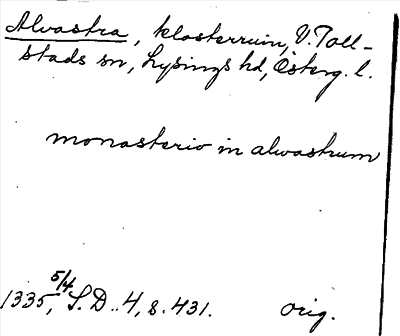 Alvastra, klosterruin, V. Toll-
stads sn, Lysings hd, Österg. l.
monasterio in alvastrum
1335 5/4, S.D. 4, s. 431. orig.